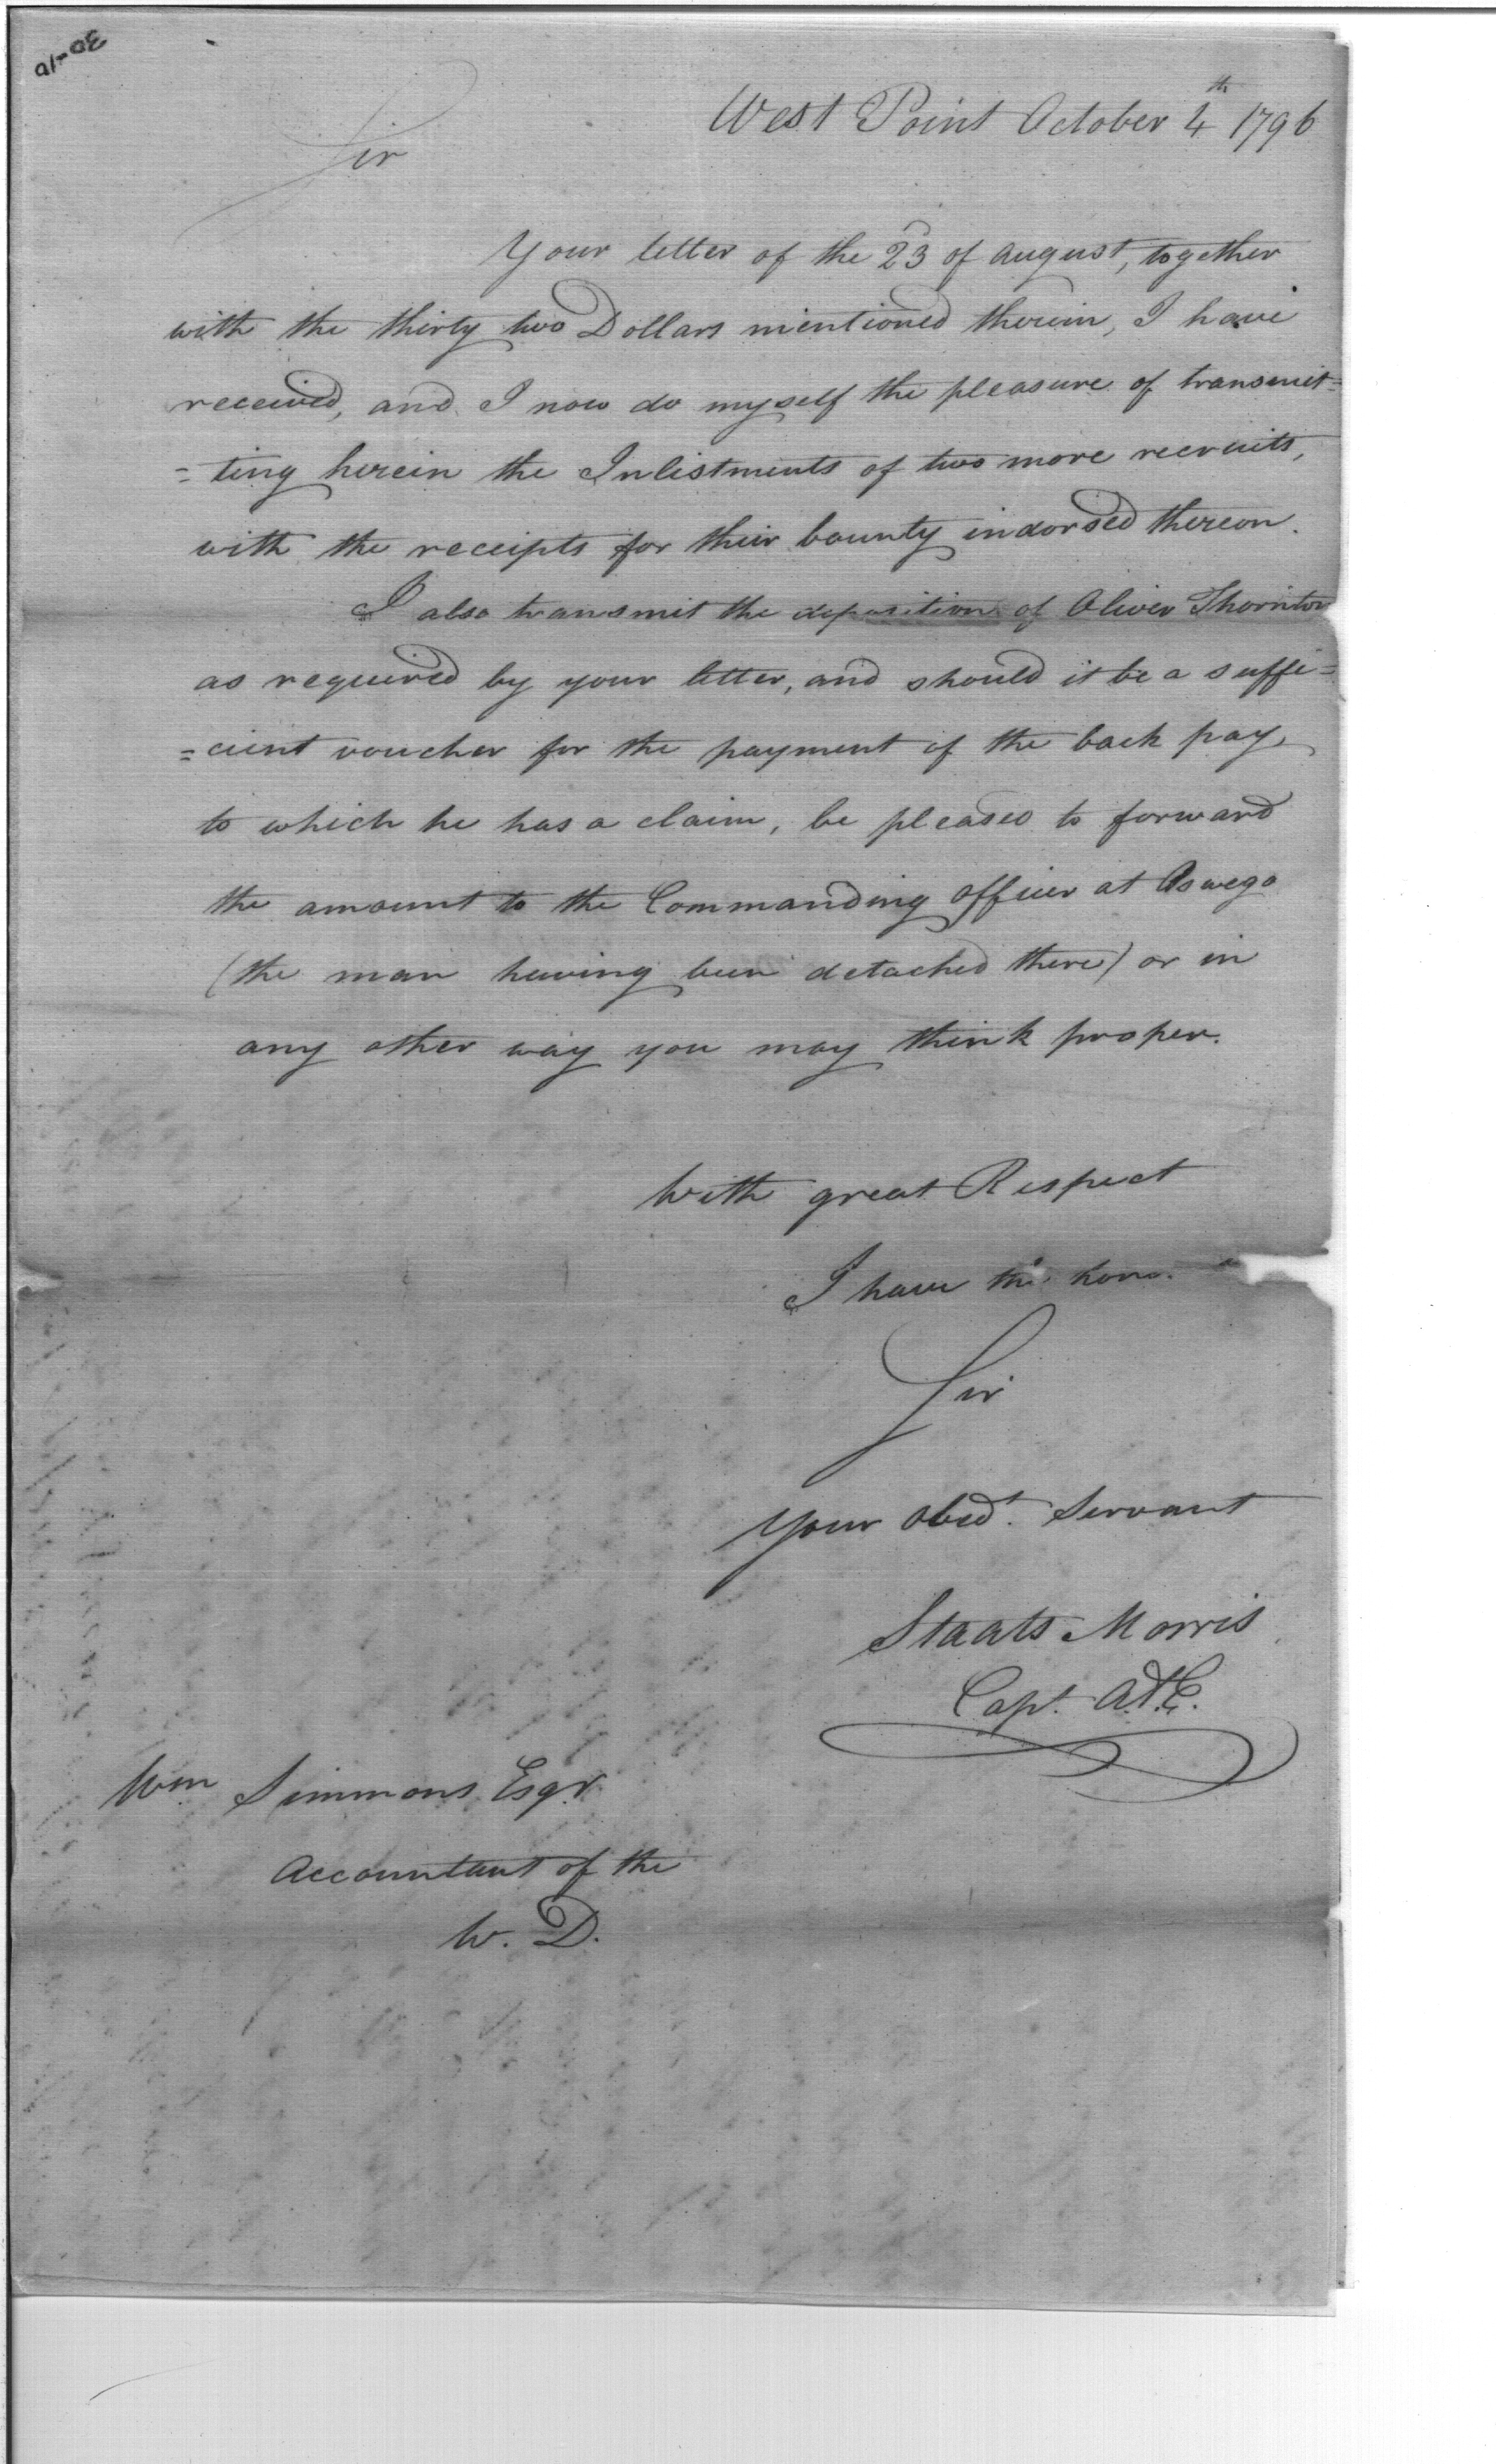 West Point October 4th 1796
Sir
Your letter of the 23 of august, together
with the thirty two Dollars mentioned therein, I have
received, and I now do myself the pleasure of transmit=
=ting herein the Inlistments of two more recruits,
with the receipts for their bounty indorsed thereon.
I also transmit the deposition of Oliver Thornton
as required by your letter, and should it be a suffi=
=cient voucher for the payment of the back pay,
to which he has a claim, be pleased to forward
the amount to the Commanding officer at Oswego
(the man having been detached there) or in
any other way you may think proper.
With great Respect
I have the hono.
Sir
Your obedt. Servant
Staats Morris
Capt. A.&E.
Wm Simmons Esqr.
Accountant of the
W. D.